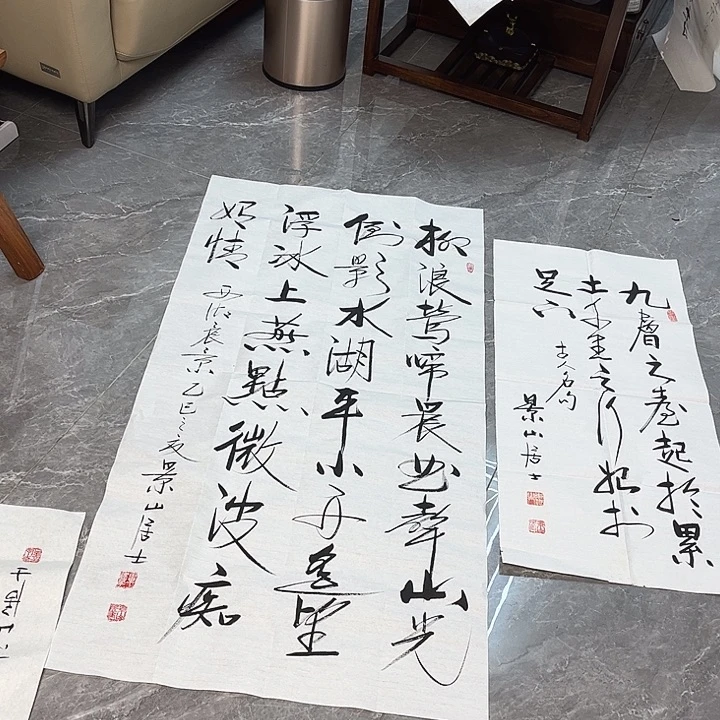 柳浪鶯啼晨曲聲山光
倒影水湖平小舟遥望
浮冰上燕點微波痴
情 西湖晨景 乙巳之夏 景山居士
九層之臺起於累
土千里之行始於
足下 古人名句
景山居士